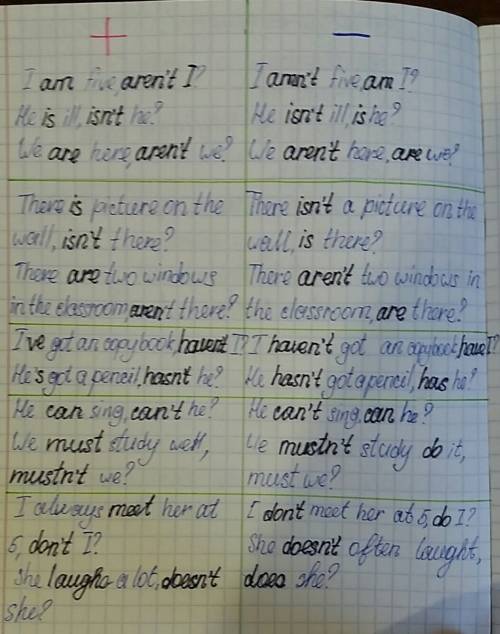 +
I am five, aren't I?
He is ill, isn't he?
We are here, aren't we?
There is picture on the
wall, isn't there?
There are two windows
in the classroom, aren't there?
I've got an copybook, haven't I?
He's got a pencil, hasn't he?
He can sing, can't he?
We must study well,
mustn't we?
I always meet her at
5, don't I?
She laughs a lot, doesn't
she?
—
I aren't five, am I?
He isn't ill, is he?
We aren't here, are we?
There isn't a picture on the
wall, is there?
There aren't two windows in
the classroom, are there?
I haven't got an copybook, have I?
He hasn't got a pencil, has he?
He can't sing, can he?
We mustn't study do it,
must we?
I don't meet her at 5, do I?
She doesn't often laught,
does she?